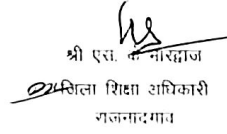 श्री एस. के भारद्वाज
जिला शिक्षा अधिकारी
राजनांदगांव